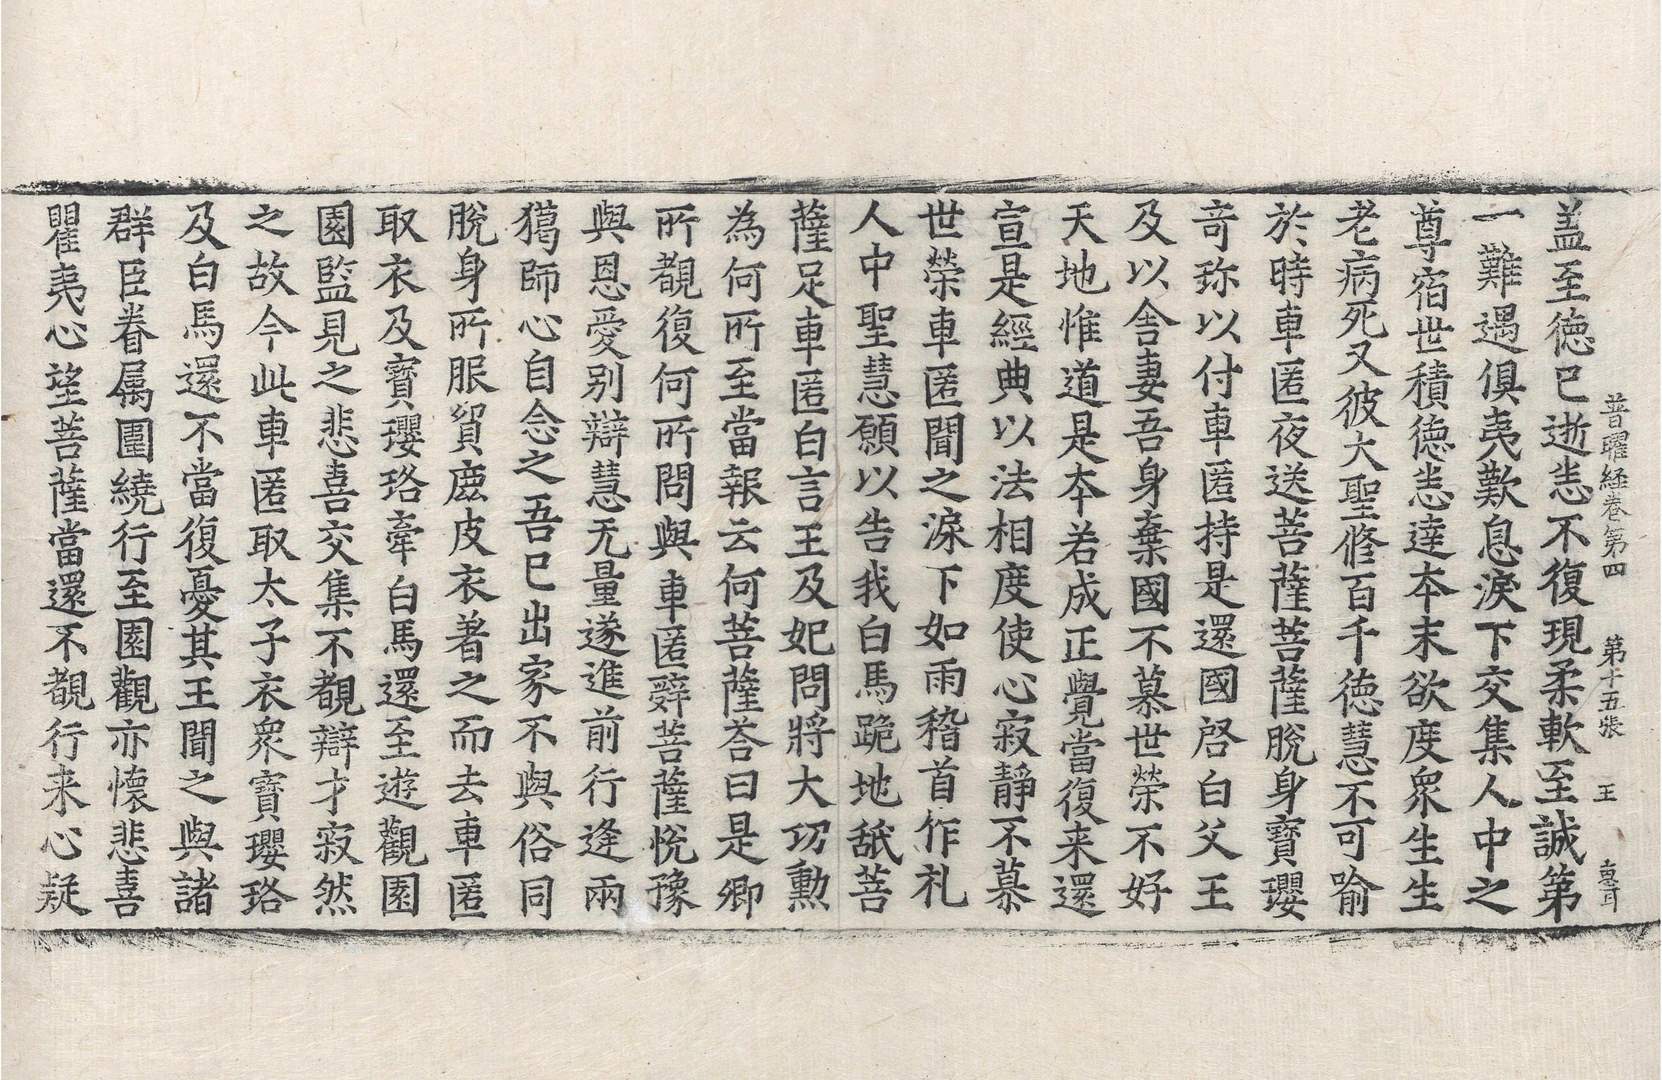 普曜経卷第四 第十五張 王
盖至德已逝恙不復現柔軟至誠第
一難遇俱夷歎息淚下交集人中之
尊宿世積德恙達夲末欲度衆生生
老病死又彼大聖修百千德慧不可喻
於時車匿夜送菩薩菩薩脫身寶瓔
竒珎以付車匿持是還國啓白父王
及以舎妻吾身棄國不慕世榮不好
天地惟道是夲若成正覺當復来還
宣是經典以法相度使心寂静不慕
世榮車匿聞之淚下如雨稽首作礼
人中聖慧願以告我白馬跪地舐菩
薩足車匿白言王及妃問將大㓛勳
為何所至當報云何菩薩荅曰是卿
所覩復何所問與車匿辝菩薩恱豫
與恩愛别辯慧无量遂進前行逢兩
獦師心自念之吾已出家不與俗同
脫身所服貿麁皮衣著之而去車匿
取衣及寳瓔珞牽白馬還至遊觀園
園監見之悲喜交集不覩辯才寂然
之故今此車匿取太子衣衆寳瓔珞
及白馬還不當復憂其王聞之與諸
群臣眷属圍繞行至園觀亦懷悲喜
瞿夷心望菩薩當還不覩行来心疑